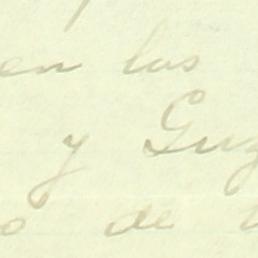 en las
y Guz
o de